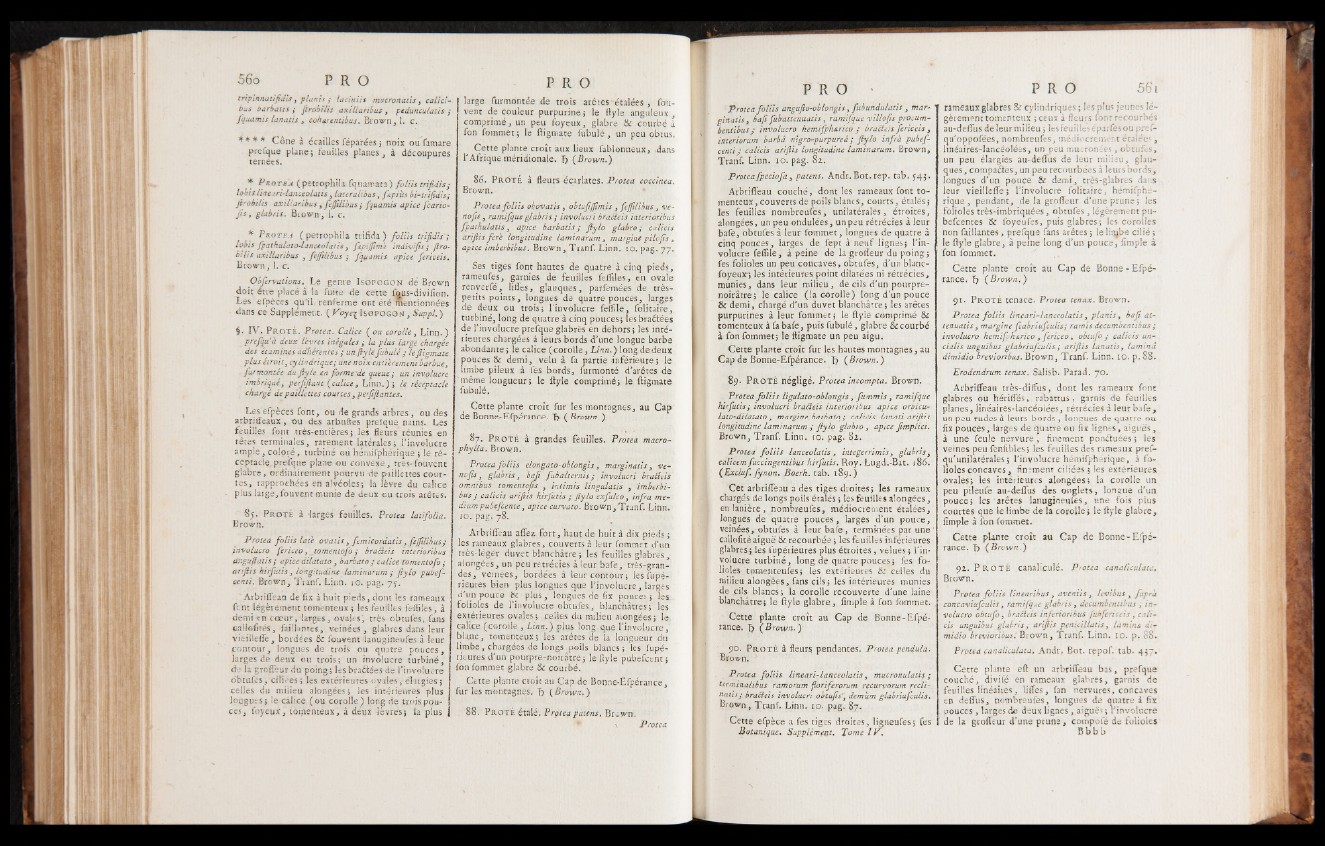 560 P R O
tripinnatifidis, planis ; laciniis mucronatis, calici-
bus barbatis ; strobilis axillaribus, pedunculatis ;
squamis lanatis, cohærentibus. Brown, l. c.
**** Cône à écailles séparées ; noix ou samare
presque plane ; feuilles planes, à découpures
ternées.
* PROTEA (petrophila squamata) foliis trifidis ;
lobis lineari-lanceolatis, lateralibus, sæpiùs bi-trifidis ;
strobilis axillaribus, sessilibus ; squamis apice scario-
sis, glabris. Brown, l. c.
* PROTEA (petrophila trifida) foliis trifidis ;
lobis spathulato-lanceolatis, sæpissimè indivisis ; stro-
bilis axillaribus, sessilibus ; squamis apice sericeis.
Brown, l. c.
Observations. Le genre ISOPOGON de Brown
doit être placé à la suite de cette sous-division.
Les espèces qu'il renferme ont été mentionnées
dans ce Supplément. (Voyez ISOPOGON, Suppl.)
§. IV. PROTÉ. Protea. Calice (ou corolle, Linn.)
presqu'à deux lèvres inégales ; la plus large chargée
des étamines adhérentes ; un style subulé ; le stigmate
plus étroit, cylindrique ; une noix entièrement barbue,
surmontée du style en forme de queue ; un involucre
imbriqué, persistant (calice, Linn.) ; le réceptacle
chargé de paillettes courtes, persistantes.
Les espèces sont, ou de grands arbres, ou des
arbrisseaux, ou des arbustes presque nains. Les
feuilles sont très-entières ; les fleurs réunies en
têtes terminales, rarement latérales ; l'involucre
ample, coloré, turbiné ou hémisphérique ; le ré-
ceptacle presque plane ou convexe, très-souvent
glabre, ordinairement pourvu de paillettes cour-
tes, rapprochées en alvéoles ; la lèvre du calice
plus large, souvent munie de deux ou trois arêtes.
85. PROTÉ à larges feuilles. Protea latifolia.
Brown.
Protea foliis latè ovatis, semicordatis, sessilibus ;
involucro sericeo, tomentoso ; bracteis interioribus
angustatis ; apice dilatato, barbato ; calice tomentoso ;
aristis hirsutis, longitudine laminarum ; stylo pubes-
cente. Brown, Tranf. Linn. 10. pag. 75.
Arbrisseau de six à huit pieds, dont les rameaux
sont légèrement tomenteux ; les feuilles sessiles, à
demi en cœur, larges, ovales, très-obtuses, sans
callosités, saillantes, veinées, glabres dans leur
vieillesse, bordées & souvent lanugineuses à leur
contour, longues de trois ou quatre pouces,
larges de deux ou trois ; un involucre turbiné,
de la grosseur du poing ; les bractées de l'involucre
obtuses, ciliées ; les extérieures ovales, élargies ;
celles du milieu alongées ; les intérieures plus
longues ; le calice (ou corolle) long de trois pou-
ces, soyeux, tomenteux, à deux lèvres ; la plus
P R O
large surmontée de trois arêtes étalées, sou-
vent de couleur purpurine ; le style anguleux,
comprimé, un peu soyeux, glabre & courbé à
son sommet ; le stigmate subulé, un peu obtus.
Cette plante croît aux lieux sablonneux, dans
l'Afrique méridionale. ♄ (Brown.)
86. PROTÉ à fleurs écarlates. Protea coccinea.
Brown.
Protea foliis obovatis, obtusissimis, sessilibus, ve-
nosis, ramisque glabris ; involucri bracteis interioribus
spathulatis, apice barbatis ; stylo glabro ; calicis
aristis ferè longitudine laminarum, margine pilosis,
apice imberbibus. Brown, Tranf. Linn. 10. pag. 77.
Ses tiges sont hautes de quatre à cinq pieds,
rameuses, garnies de feuilles sessiles, en ovale
renversé, lisses, glauques, parsemées de très-
petits points, longues de quatre pouces, larges
de deux ou trois ; l'involucre sessile, solitaire,
turbiné, long de quatre à cinq pouces ; les bractées
de l'involucre presque glabres en dehors ; les inté-
rieures chargées à leurs bords d'une longue barbe
abondante ; le calice (corolle, Linn.) long de deux
pouces & demi, velu à sa partie inférieure ; le
limbe pileux à ses bords, surmonté d'arêtes de
même longueur ; le style comprimé ; le stigmate
subulé.
Cette plante croît sur les montagnes, au Cap
de Bonne-Espérance. ♄ (Brown.)
87. PROTÉ à grandes feuilles. Protea macro-
phylla. Brown.
Protea foliis elongato-oblongis, marginatis, ve-
nosis, glabris, basi subalternis ; involucri bracteis
omnibus tomentosis, intimis lingulatis, imberbi-
bus ; calicis aristis hirsutis ; stylo exsulco, infra me-
dium pubescente, apice curvato. Brown, Tranf. Linn.
10. pag. 78.
Arbrisseau assez fort, haut de huit à dix pieds ;
les rameaux glabres, couverts à leur sommet d'un
très-léger duvet blanchâtre ; les feuilles glabres,
alongées, un peu rétrécies à leur base, très-gran-
des, veinées, bordées à leur contour ; les supé-
rieures bien plus longues que l'involucre, larges
d'un pouce & plus, longues de six pouces ; les
folioles de l'involucre obtuses, blanchâtres ; les
extérieures ovales ; celles du milieu alongées ; le
calice (corolle, Linn.) plus long que l'involucre,
blanc, tomenteux ; les arêtes de la longueur du
limbe, chargées de longs poils blancs ; les supé-
rieures d'un pourpre-noirâtre ; le style pubescent ;
son sommet glabre & courbé.
Cette plante croît au Cap de Bonne-Espérance,
sur les montagnes. ♄ (Brown.)
88. PROTÉ étalé. Protea patens. Brown.
Protea
P R O
Protea foliis angusto-oblongis, subundulatis, mar-
ginatis, basi subattenuatis, ramisque villosis procum-
bentibus ; involucro hemisphærico ; bracteis sericeis,
interiorum barbâ nigro-purpureâ ; stylo infrà pubes-
centi ; calicis aristis longitudine laminarum. Brown,
Tranf. Linn. 10. pag. 82.
Protea speciosa, patens. Andr. Bot. rep. tab. 543.
Arbrisseau couché, dont les rameaux sont to-
menteux, couverts de poils blancs, courts, étalés ;
les feuilles nombreuses, unilatérales, étroites,
alongées, un peu ondulées, un peu rétrécies à leur
base, obtuses à leur sommet, longues de quatre à
cinq pouces, larges de sept à neuf lignes ; l'in-
volucre sessile, à peine de la grosseur du poing ;
ses folioles un peu concaves, obtuses, d'un blanc-
soyeux ; les intérieures point dilatées ni rétrécies,
munies, dans leur milieu, de cils d'un pourpre-
noirâtre ; le calice (la corolle) long d'un pouce
& demi, chargé d'un duvet blanchâtre ; les arêtes
purpurines à leur sommet ; le style comprimé &
tomenteux à sa base, puis subulé, glabre & courbé
à son sommet ; le stigmate un peu aigu.
Cette plante croît sur les hautes montagnes, au
Cap de Bonne-Espérance. ♄ (Brown.)
89. PROTÉ négligé. Protea incompta. Brown.
Protea foliis ligulato-oblongis, summis, ramisque
hirsutis ; involucri bracteis interioribus apice orbicu-
lato-dilatato, margine barbato ; calicis lanati aristis
longitudine laminarum ; stylo glabro, apice simplici.
Brown, Tranf. Linn. 10. pag. 82.
Protea foliis lanceolatis, integerrimis, glabris,
calicem succingentibus hirsutis. Roy. Lugd.-Bat. 186.
(Excluf. synon. Boerh. tab. 189.)
Cet arbrisseau a des tiges droites ; les rameaux
chargés de longs poils étalés ; les feuilles alongées,
en lanière, nombreuses, médiocrement étalées,
longues de quatre pouces, larges d'un pouce,
veinées, obtuses à leur base, terminées par une
callosité aiguë & recourbée ; les feuilles inférieures
glabres ; les supérieures plus étroites, velues ; l'in-
volucre turbiné, long de quatre pouces ; ses fo-
lioles tomenteuses ; les extérieures & celles du
milieu alongées, sans cils ; les intérieures munies
de cils blancs ; la corolle recouverte d'une laine
blanchâtre ; le style glabre, simple à son sommet.
Cette plante croît au Cap de Bonne-Espé-
rance. ♄ (Brown.)
90. PROTÉ à fleurs pendantes. Protea pendula.
Brown.
Protea foliis lineari-lanceolatis, mucronulatis ;
terminalibus ramorum floriferorum recurvorum recli-
natis ; bracteis involucri obtusis, demùm glabriusculis.
Brown, Tranf. Linn. 10. pag. 87.
Cette espèce a ses tiges droites, ligneuses ; ses
Botanique. Supplément. Tome IV.
P R O 561
rameaux glabres & cylindriques ; les plus jeunes lé-
gèrement tomenteux ; ceux à fleurs sont recourbés
au-dessus de leur milieu ; les feuilles éparses ou pres-
qu'opposées, nombreuses, médiocrement étalées,
linéaires-lancéolées, un peu mucronées, obtuses,
un peu élargies au-dessus de leur milieu, glau-
ques, compactes, un peu recourbées à leurs bords,
longues d'un pouce & demi, très-glabres dans
leur vieillesse ; l'involucre solitaire, hémisphé-
rique, pendant, de la grosseur d'une prune ; les
folioles très-imbriquées, obtuses, légèrement pu-
bescentes & soyeuses, puis glabres ; les corolles
non saillantes, presque sans arêtes ; le limbe cilié ;
le style glabre, à peine long d'un pouce, simple à
son sommet.
Cette plante croît au Cap de Bonne-Espé-
rance. ♄ (Brown.)
91. PROTÉ tenace. Protea tenax. Brown.
Protea foliis lineari-lanceolatis, planis, basi at-
tenuatis, margine scabriusculis ; ramis decumbentibus ;
involucro hemisphærico, sericeo, obtuso ; calicis un-
cialis unguibus glabriusculis ; aristis lanatis, laminâ
dimidio brevioribus. Brown, Tranf. Linn. 10. p. 88.
Erodendrum tenax. Salisb. Parad. 70.
Arbrisseau très-diffus, dont les rameaux sont
glabres ou hérissés, rabattus, garnis de feuilles
planes, linéaires-lancéolées, rétrécies à leur base,
un peu rudes à leurs bords, longues de quatre ou
six pouces, larges de quatre ou six lignes, aiguës,
à une seule nervure, finement ponctuées ; les
veines peu sensibles ; les feuilles des rameaux pres-
qu'unilatérales ; l'involucre hémisphérique, à fo-
lioles concaves, finement ciliées ; les extérieures
ovales ; les intérieures alongées ; la corolle un
peu pileuse au-dessus des onglets, longue d'un
pouce ; les arêtes lanugineuses, une fois plus
courtes que le limbe de la corolle ; le style glabre,
simple à son sommet.
Cette plante croît au Cap de Bonne-Espé-
rance. ♄ (Brown.)
92. PROTÉ canaliculé. Protea canaliculata.
Brown.
Protea foliis linearibus, aveniis, levibus, suprà
concaviusculis, ramisque glabris, decumbentibus ; in-
volucro obtuso, bracteis inferioribus subsericeis, cali-
cis unguibus glabris, aristis penicillatis, lamina di-
midio brevioribus. Brown, Tranf. Linn. 10. p. 88.
Protea canaliculata. Andr. Bot. repof. tab. 437.
Cette plante est un arbrisseau bas, presque
couché, divisé en rameaux glabres, garnis de
feuilles linéaires, lisses, sans nervures, concaves
en dessus, nombreuses, longues de quatre à six
pouces, larges de deux lignes, aiguës ; l'involucre
de la grosseur d'une prune, composé de folioles
Bbbb